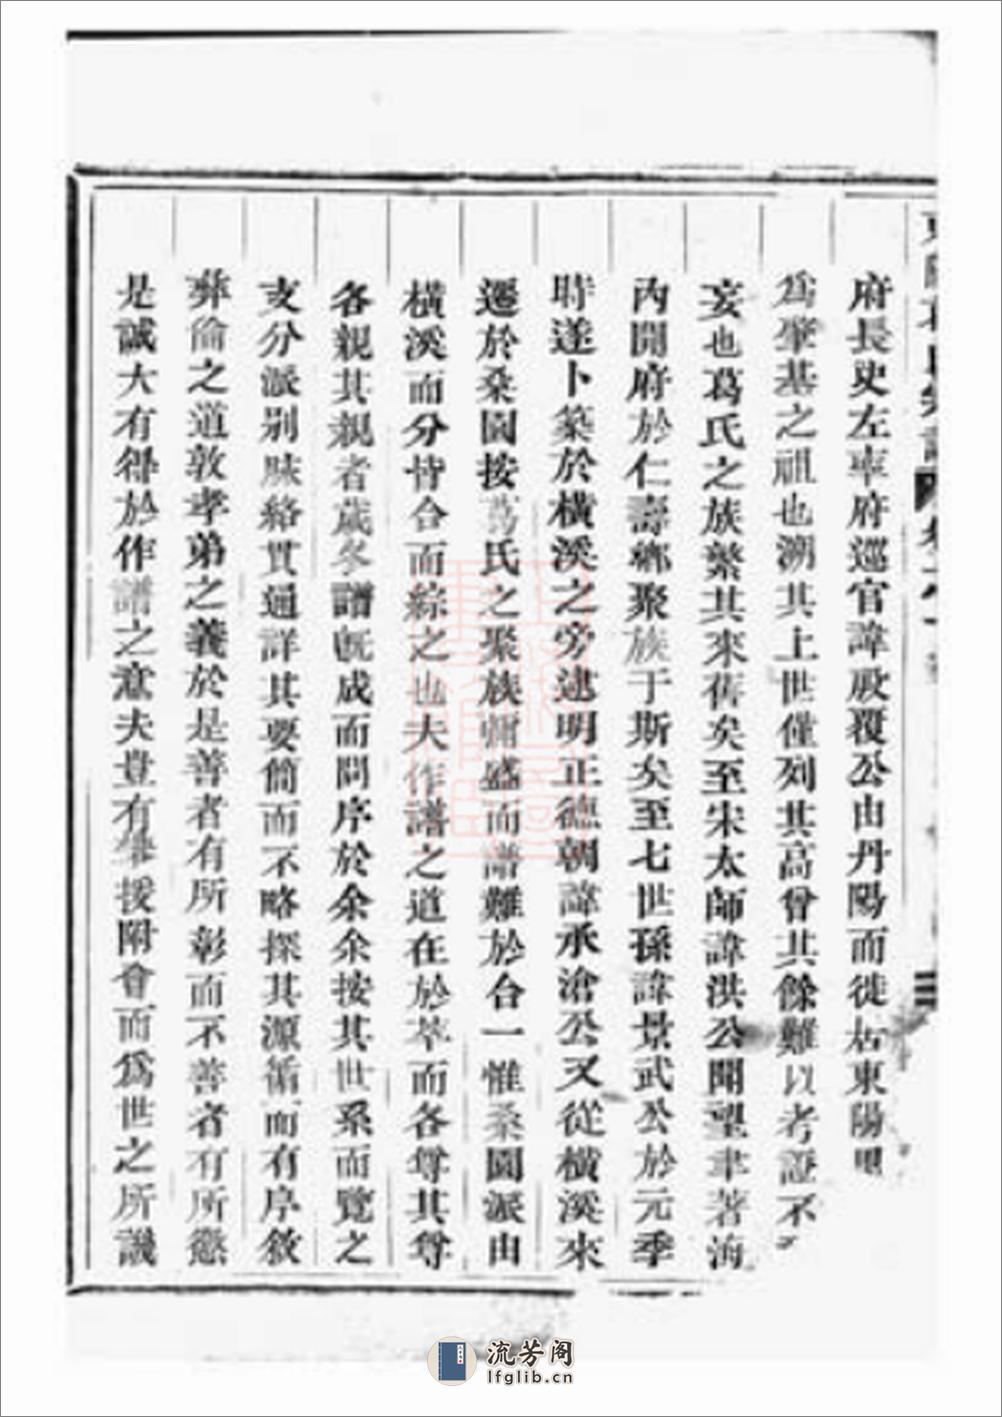 府長史左率府巡官諱殷覆公由丹陽而徙居東陽
為肇基之祖也溯其上世僅列其高曾其餘難以考證不
妄也葛氏之族繁其來舊矣至宋太師諱洪公聞望丰著海
內開府於仁壽鄉聚族于斯矣至七世孫諱景武公於元季
時遂卜築於橫溪之旁逮明正德朝諱承滄公又從橫溪來
遷於桑園按葛氏之聚族彌盛而譜難於合一惟桑園派由
橫溪而分皆合而綜之也夫作譜之道在於萃而各尊其尊
各親其親者歲冬譜既成而問序於余余按其世系而覽之
支分派别脉絡貫通詳其要簡而不略探其源循而有序敘
彝倫之道敦孝弟之義於是善者有所彰而不善者有所懲
是誠大有得於作譜之意夫豈有攀援附會而為世之所譏
流芳阁
lfglib.cn